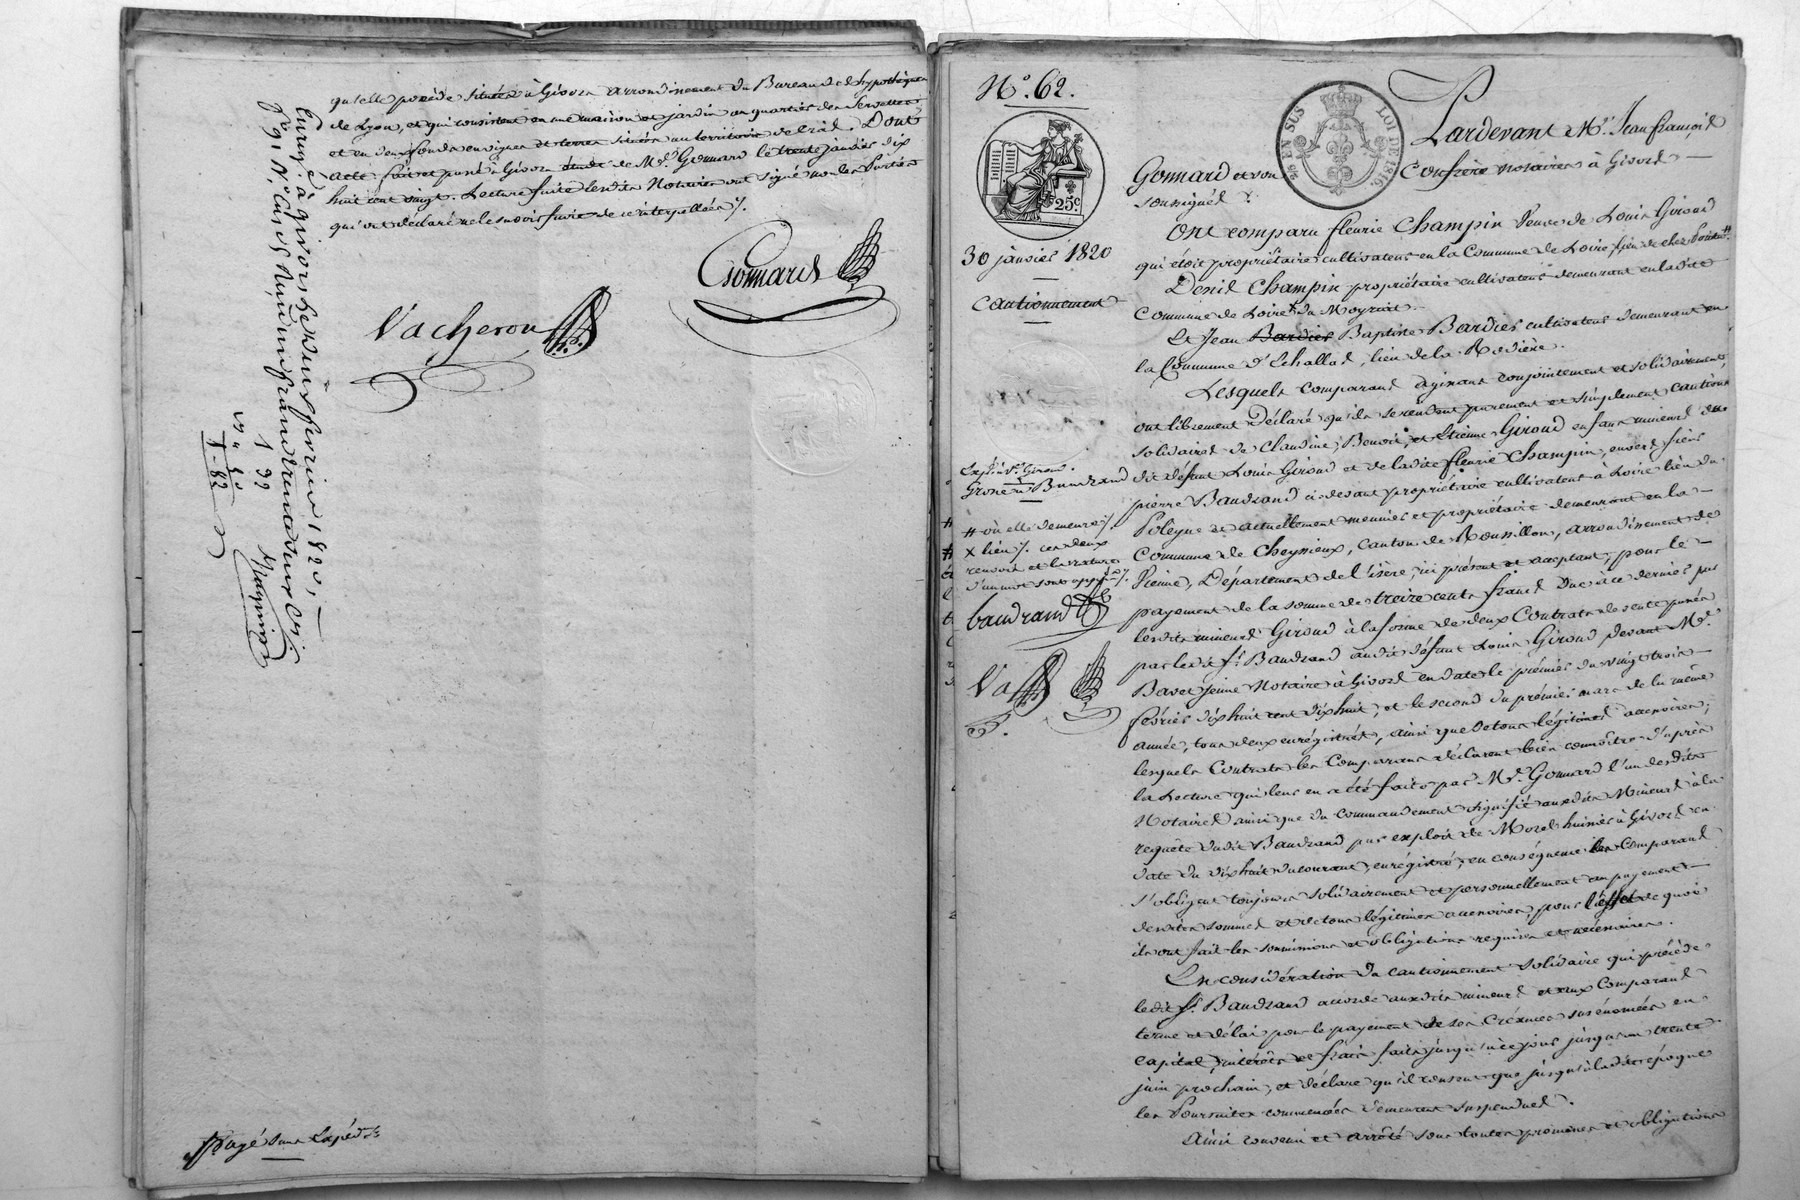 qu'elle possède situés à Givors arrondissement du Bureau des hypothèques
de Lyon, et qui consistent en une maison et jardin au quartier des
et en deux fonds en vignes et terres situés au territoire de
acte fait et passé à Givors étude de Me. Gonnard le trente janvier dix
huit cent vingt. Lecture faite lesdits Notaires ont signé non les parties
qui ont déclaré ne le savoir faire de ce interpellées ./.
Gonnard
Vacheron
Enregé. à Givors le deux fevrier 1820,
fo. 91 No. Cases Reçu un franc
1
1 - 82
Payé sans Expédon
No. 62.
25 EN SUS
LOI DE 1816.
25c.
30 janvier 1820
Cautionnement
Pardevant Me. Jean françois
Gonnard et son Confrère notaires à Givors
soussignés
Ont comparu fleurie Champin Veuve de Louis Giroud
qui étoit propriétaire cultivateur en la Commune de Loire lieu de chez #
Denis Champin propriétaire cultivateur demeurant en ladite
Commune de Loire x du Moyroit
Et Jean Bardier Baptiste Bardier cultivateur demeurant en
la Commune d'Echallas, lieu de la Rodière.
Lesquels comparans agissant conjointement et solidairement
ont librement Déclaré qu'ils se rendent purement et simplement cautions
solidaires de Claudine, Benoit, et Etienne Giroud enfans mineurs du
dit défunt Louis Giroud et de ladite fleurie Champin, envers sieur
pierre Baudrand ci-devant propriétaire cultivateur à Loire lieu du
et actuellement meunier et propriétaire demeurant en la
Commune de Cheyssieux, Canton de Roussillon, arrondissement de
Vienne, Département de l'isère, ici présent et acceptant, pour le
payement de la somme de treize cents francs due à ce dernier par
lesdits mineurs Giroud à la forme de deux Contrats de vente passés
par ledit sr. Baudrand audit défunt Louis Giroud devant Me.
Bavet jeune Notaire à Givors en date le premier du vingt trois
février dix huit cent dix huit, et le second du premier mars de la même
année, tous deux enrégistrés, ainsi que de tous légitimes accessoires;
lesquels Contrats les Comparans déclarent bien connoître d'après
la Lecture qui leur en a été faite par Me. Gonnard l'un desdits
Notaires ainsi que du commandement signifié auxdits Mineurs à la
requête dudit Baudrand par exploit de Morel huissier à Givors en
date du dix huit du courant, enrégistré; en conséquence les Comparans
s'obligent toujours solidairement et personnellement au payement
desdites sommes et de tous légitimes accessoires, pour l'effet de quoi
ils ont fait les soumissions et obligations requises et nécessaires.
En considération du cautionnement solidaire qui précède
ledit sr. Baudrand accorde auxdits mineurs et aux Comparans
terme et délai pour le payement de ses Créances susénoncées en
capital, intérêts et frais faits jusqu'à ce jour jusqu'au trente
juin prochain, et déclare qu'il consent que jusqu'à ladite époque
les Poursuites commencées demeurent suspendues.
Ainsi convenu et arrêté sous toutes promesses et obligations
Expéd. à Ve. Giroud.
Grosse à Baudrand
# où elle demeure ./.
x lieu ./. ces deux
renvois et la rature
d'un mot sont approuvés ./.
baudrand
Va